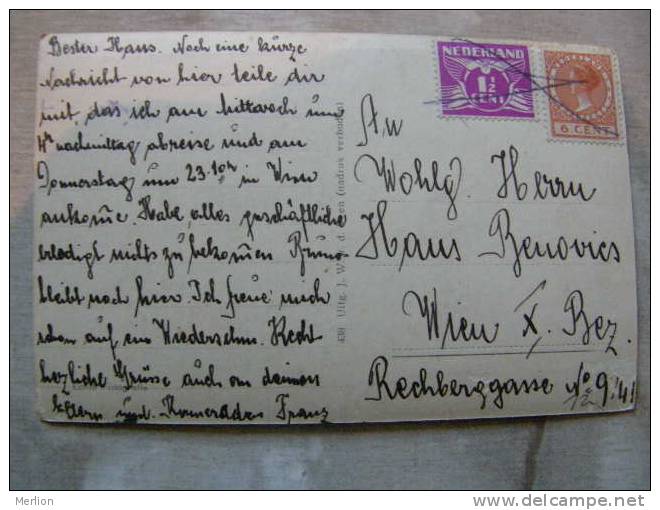 Bester Hans. Noch eine kurze
Nachricht von hier teile dir
mit das ich am Mittwoch um
4h nachmittag abreise und am
Donnerstag um 23.10h in Wien
ankome. Habe alles geschäftliche
erledigt nichts zu bekomen Bruno
bleibt noch hier. Ich freue mich
schon auf ein Wiedersehn. Recht
herzliche Grüsse auch an deinen
Eltern und Kameraden Franz
438 Uitg. J. (nadruk verboden)
NEDERLAND
1½
CENT
6 CENT
An
Wohlg. Herrn
Hans Benovics
Wien X. Bez.
Rechberggasse No 9.
Merlion
www.delcampe.net